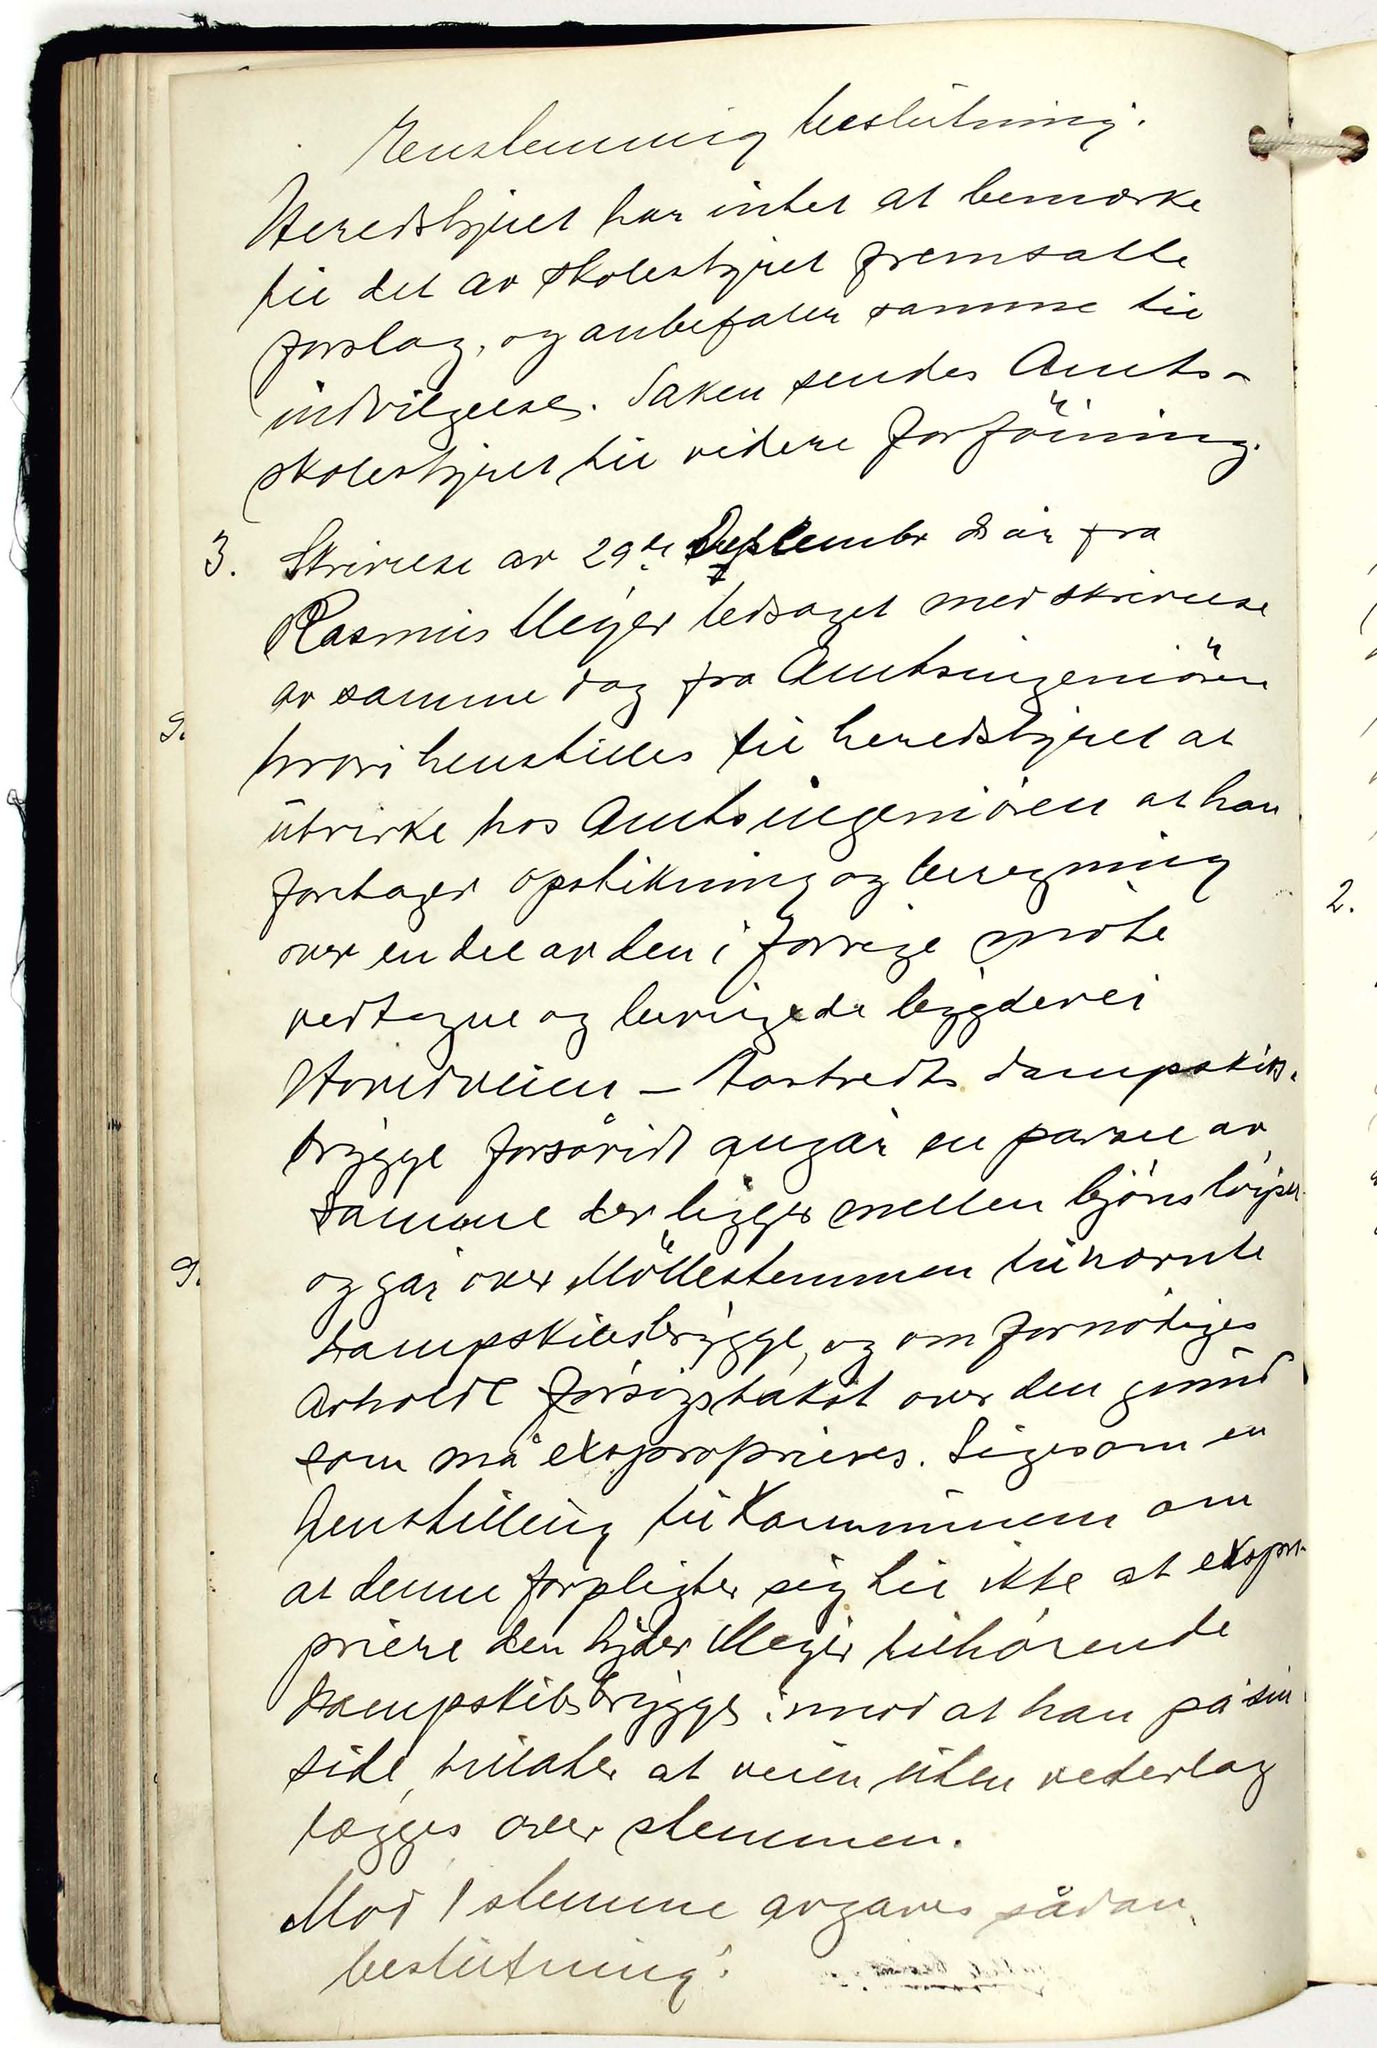 Enstemmig beslutning:
Heredstyret har intet at bemærke
til det av skolestyret fremsatte
forslag, og anbefaler samme til
indvilgelse. Saken sendes Amts-
skolestyret til videre forföining.
3. Skrivelse av 29de September d år fra
Rasmus Meyer ledsaget med skrivelse
av samme dag fra Amtsingeniören
hvori henstilles til heredstyret at
utvirke hos Amtsingeniören at han
foretager opstikning og beregning
over en del av den i forrige möte
vedtagne og bevilgede bygdevei
Hovedveien – Aastvedts dampskibs-
brygge forsåvidt angår en parsel av
samme der ligger mellem
og går over Möllestemmen til nævnte
dampskibsbrygge, og om fornödiges
avholdt forsögstakst over den grund
som må eksproprieres. Ligesom en
henstilling til Kommunen om
at denne forpligter sig til ikke at ekspro-
priere den hr Meyer tilhörende
dampskibsbrygge imod at han på sin
side tillater at veien uten vederlag
lægges over stemmen.
Mod 1 stemme avgaves sådan
beslutning:
9.
9.
2.